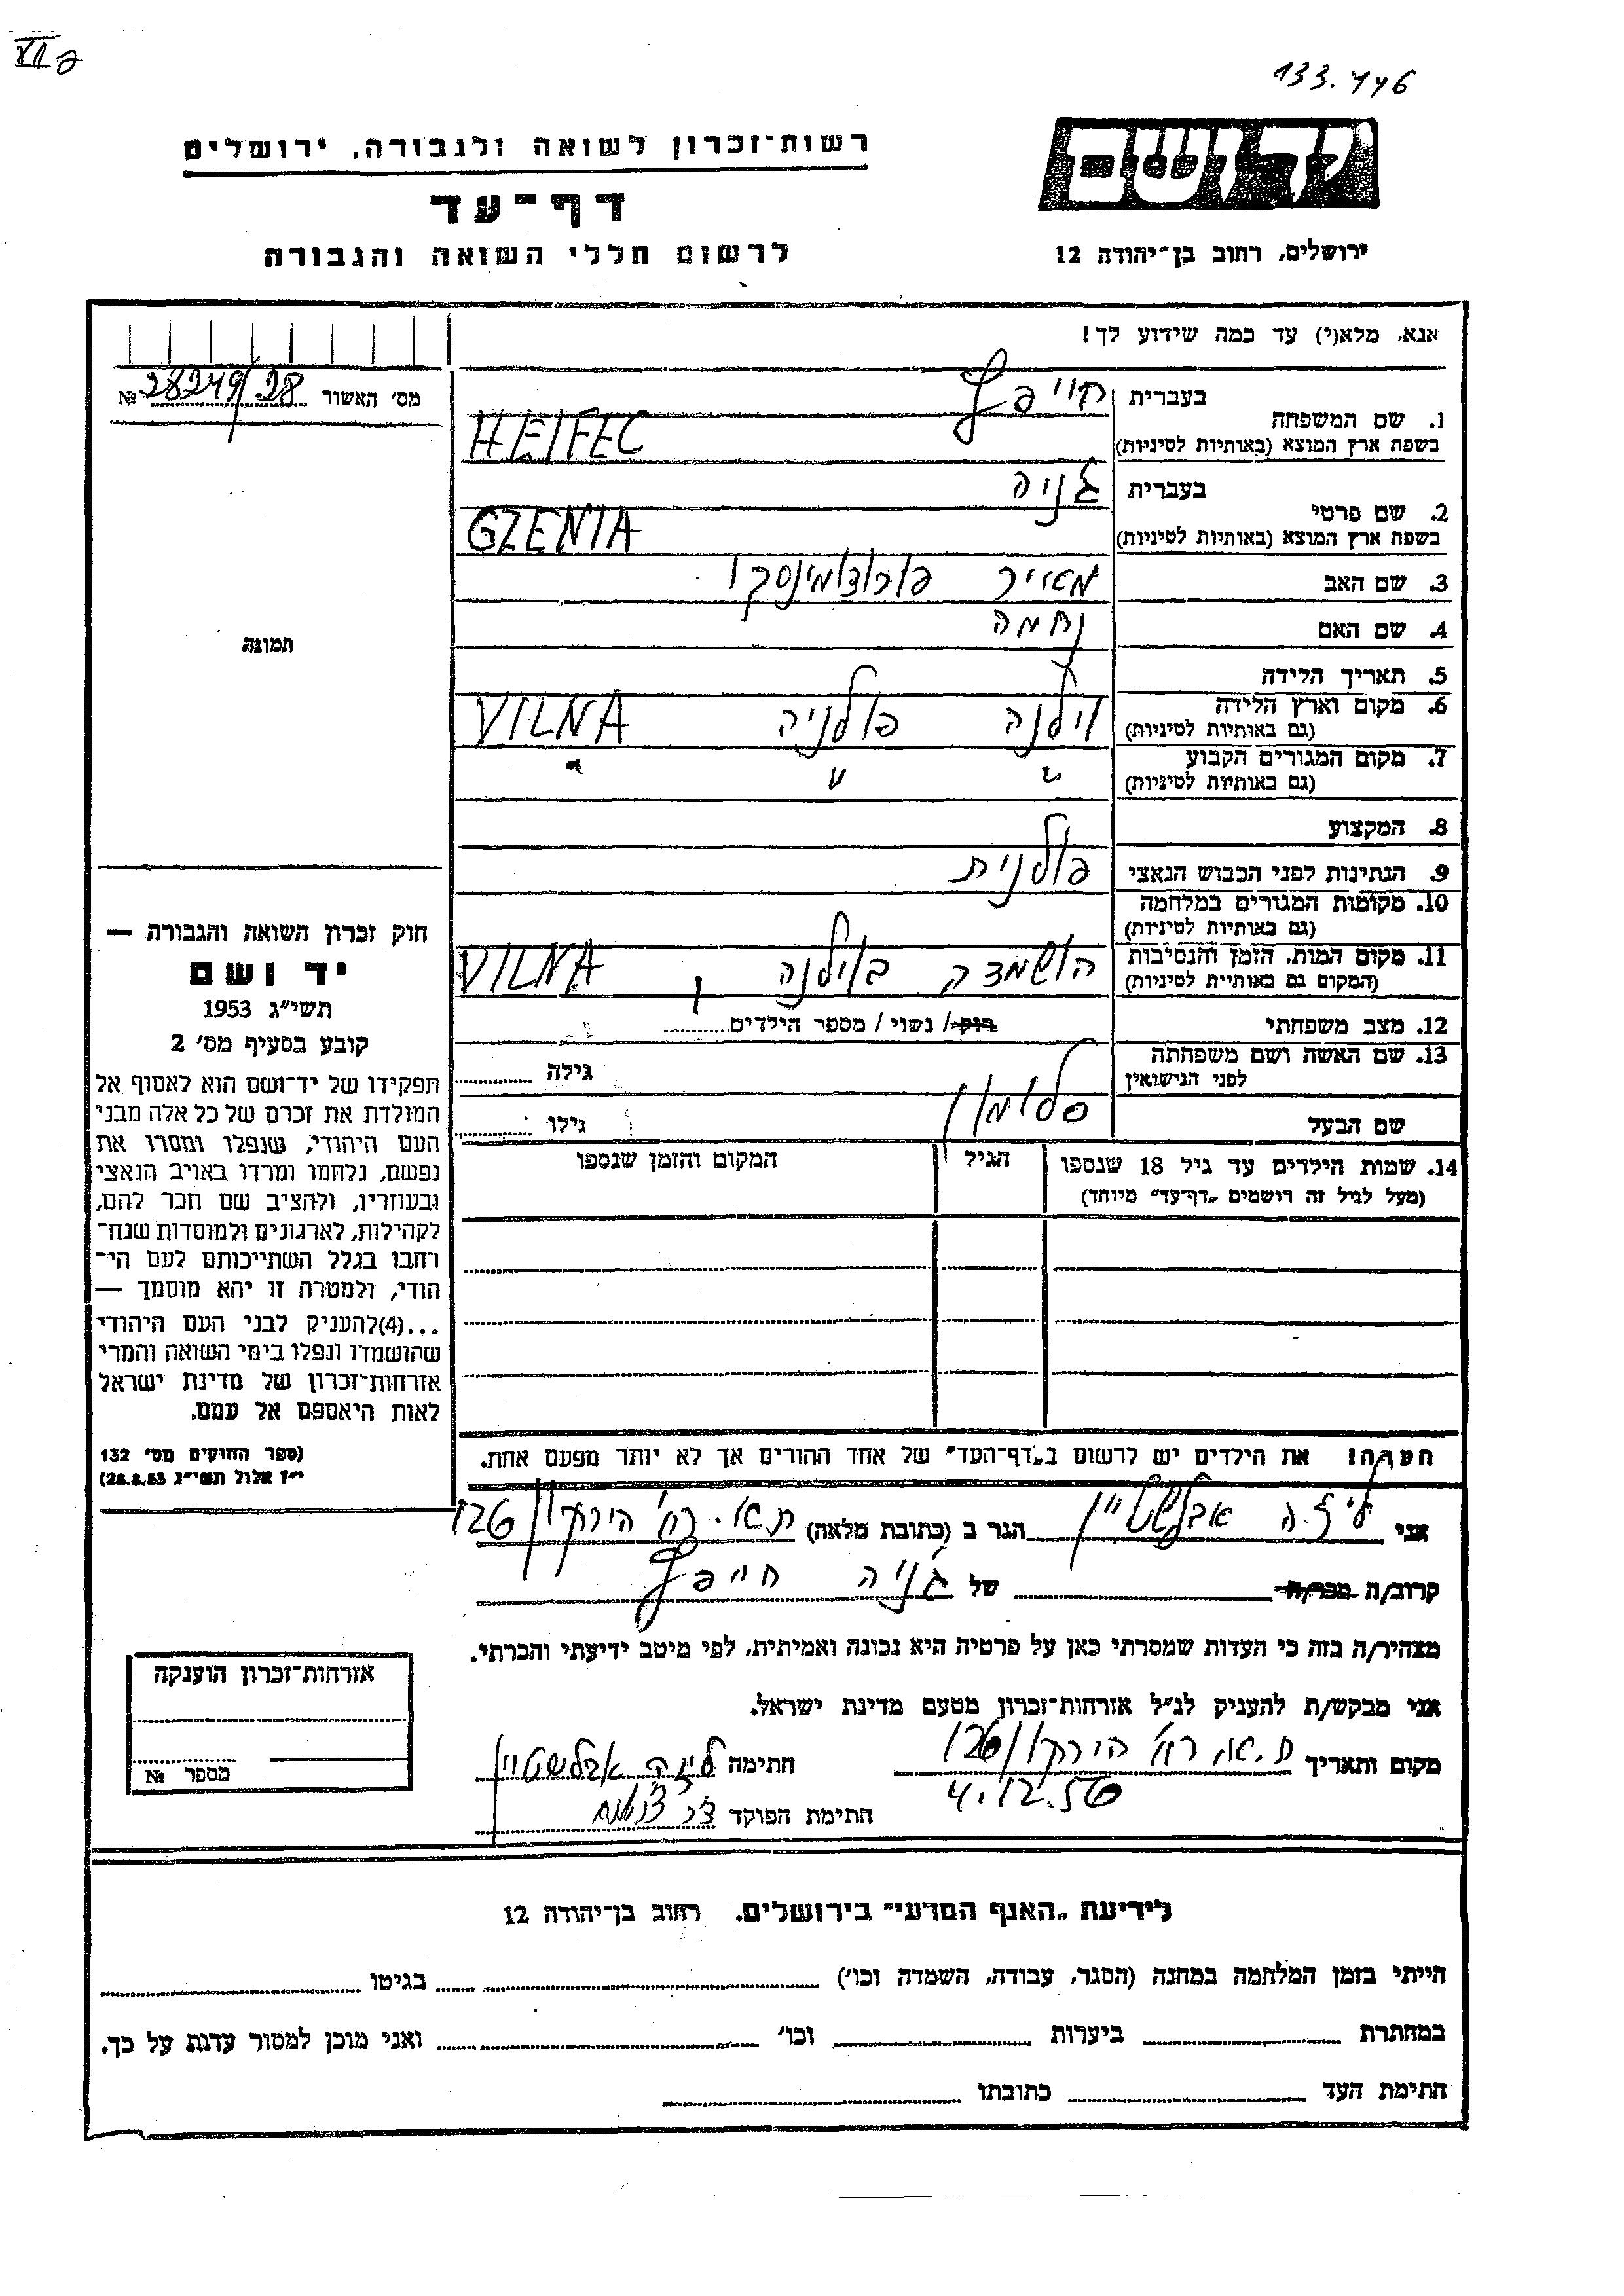 133.446
רשות־זכרון לשואה ולגבורה, ירושלים
יד ושם
דף־עד
לרשום חללי השואה והגבורה
ירושלים, רחוב בן־יהודה 12
אנא, מלא(י) עד כמה שידוע לך!
מס׳ האשור 28249/28 №
בעברית חייפץ
1. שם המשפחה
בשפת ארץ המוצא (באותיות לטיניות) HEIFEC
בעברית גניה
2. שם פרטי
בשפת ארץ המוצא (באותיות לטיניות) GZENIA
3. שם האב מאיר
4. שם האם נחמה
תמונה
5. תאריך הלידה
6. מקום וארץ הלידה וילנה פולניה VILNA
(גם באותיות לטיניות)
7. מקום המגורים הקבוע " " "
(גם באותיות לטיניות)
8. המקצוע
9. הנתינות לפני הכבוש הנאצי פולנית
10. מקומות המגורים במלחמה
(גם באותיות לטיניות)
11. מקום המות, הזמן והנסיבות הושמדה בוילנה, VILNA
(המקום גם באותיות לטיניות)
12. מצב משפחתי רוק / נשוי / מספר הילדים
13. שם האשה ושם משפחתה
לפני הנישואין
גילה
שם הבעל סלומון גילו
14. שמות הילדים עד גיל 18 שנספו הגיל המקום והזמן שנספו
(מעל לגיל זה רושמים „דף־עד” מיוחד)
חוק זכרון השואה והגבורה —
יד ושם
תשי״ג 1953
קובע בסעיף מס׳ 2
תפקידו של יד־ושם הוא לאסוף אל
המולדת את זכרם של כל אלה מבני
העם היהודי, שנפלו ומסרו את
נפשם, נלחמו ומרדו באויב הנאצי
ובעוזריו, ולהציב שם וזכר להם,
לקהילות, לארגונים ולמוסדות שנח־
רחבו בגלל השתייכותם לעם הי־
הודי, ולמטרה זו יהא מוסמך —
...(4)להעניק לבני העם היהודי
שהושמדו ונפלו בימי השואה והמרי
אזרחות־זכרון של מדינת ישראל
לאות היאספם אל עמם.
(ספר החוקים מס׳ 132
י״ז אלול תשי״ג 28.8.53)
הערה! את הילדים יש לרשום ב„דף־העד” של אחד ההורים אך לא יותר מפעם אחת.
אני ליזה אבלשטיין הגר ב (כתובת מלאה) ת.א. רח׳ הירקון 126
קרוב/ה מכר/ה של גניה חייפץ
מצהיר/ה בזה כי העדות שמסרתי כאן על פרטיה היא נכונה ואמיתית, לפי מיטב ידיעתי והכרתי.
אני מבקש/ת להעניק לנ״ל אזרחות־זכרון מטעם מדינת ישראל.
אזרחות־זכרון הוענקה
מספר №
מקום ותאריך ת.א. רח׳ הירקון 126 חתימה ליזה אבלשטיין
4.12.56
חתימת הפוקד
לידיעת „האגף המדעי” בירושלים. רחוב בן־יהודה 12
הייתי בזמן המלחמה במחנה (הסגר, עבודה, השמדה וכו׳) בגיטו
במחתרת ביערות וכו׳ ואני מוכן למסור עדות על כך.
חתימת העד כתובתו